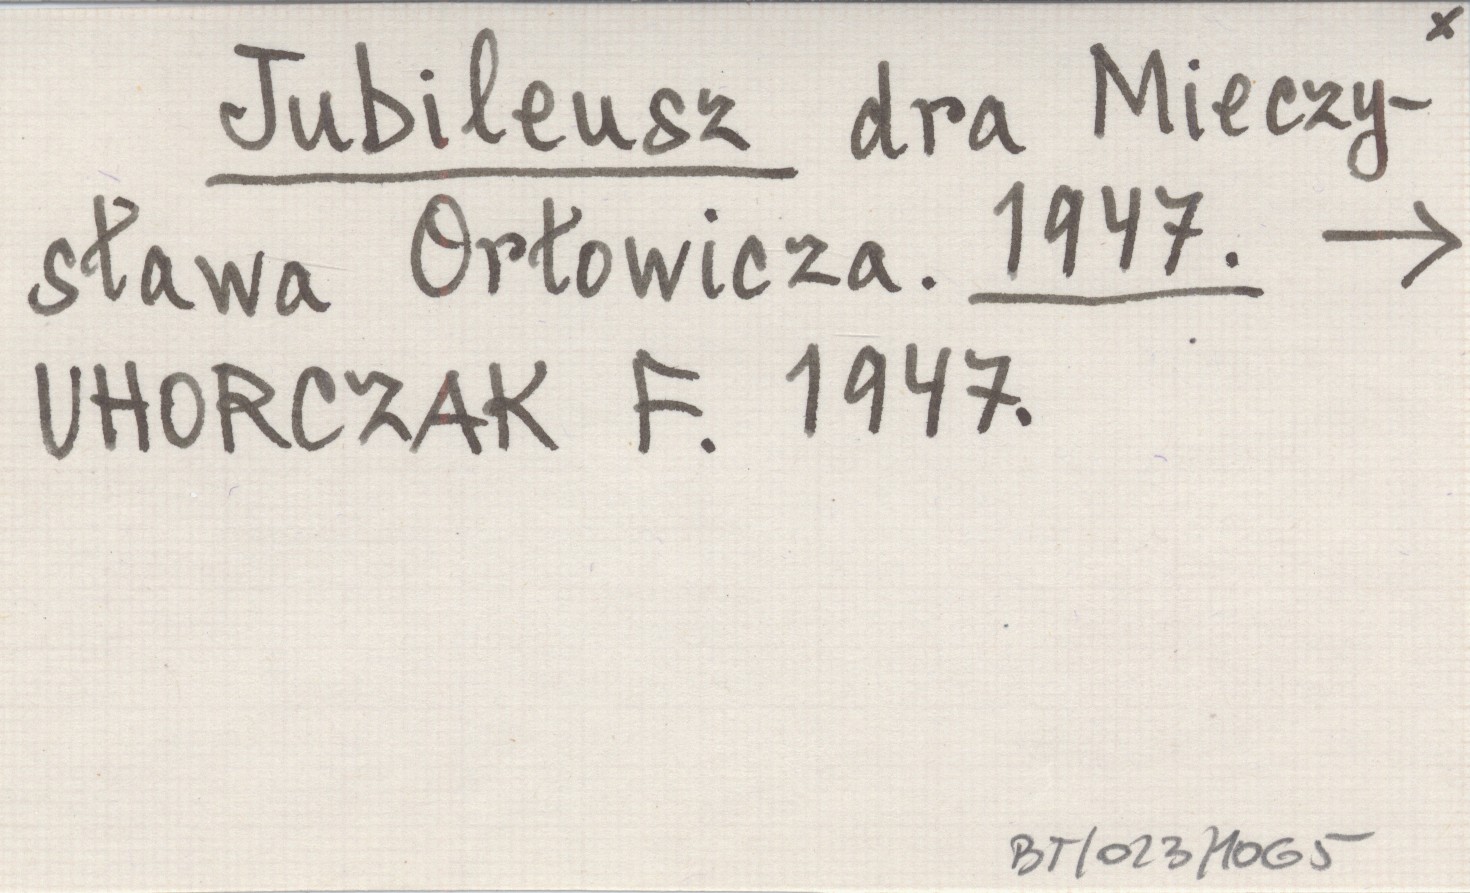 x
Jubileusz dra Mieczy-
sława Orłowicza. 1947. →
UHORCZAK F. 1947.
BT/023/1065